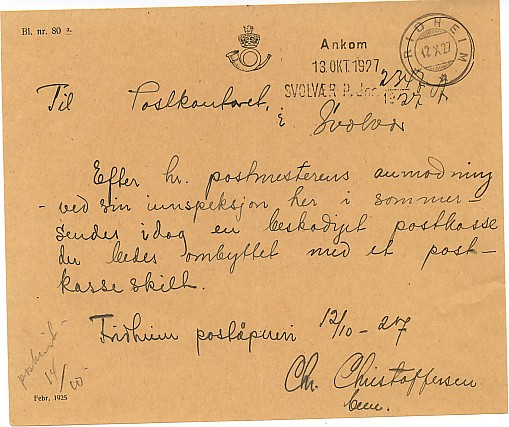 Bl. nr. 80 a.
Ankom
13. OKT. 1927
SVOLVÆR P. Jnr. 234
1927
FRIDHEIM
12.X.27
Til Postkontoret,
i Svolvær
Efter hr. postmesterens anmodning
- ved sin innspeksjon her i sommer -
sendes idag en beskadiget postkasse
der bedes ombyttet med et post-
kasseskilt.
Fridheim poståpneri 12/10 - 27
Chr. Christoffersen
14/10
Febr. 1925